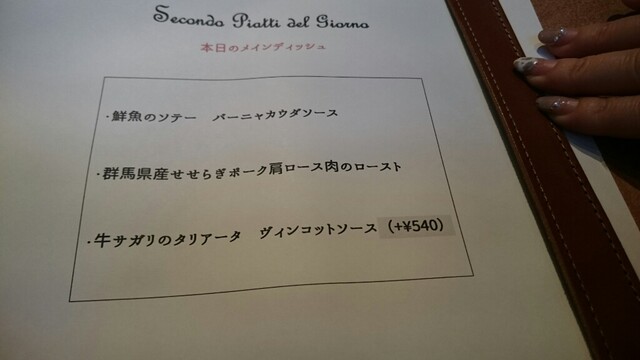 Secondo Piatti del Giorno
本日のメインディッシュ
・鮮魚のソテー　バーニャカウダソース
・群馬県産せせらぎポーク肩ロース肉のロースト
・牛サガリのタリアータ　ヴィンコットソース（+¥540）